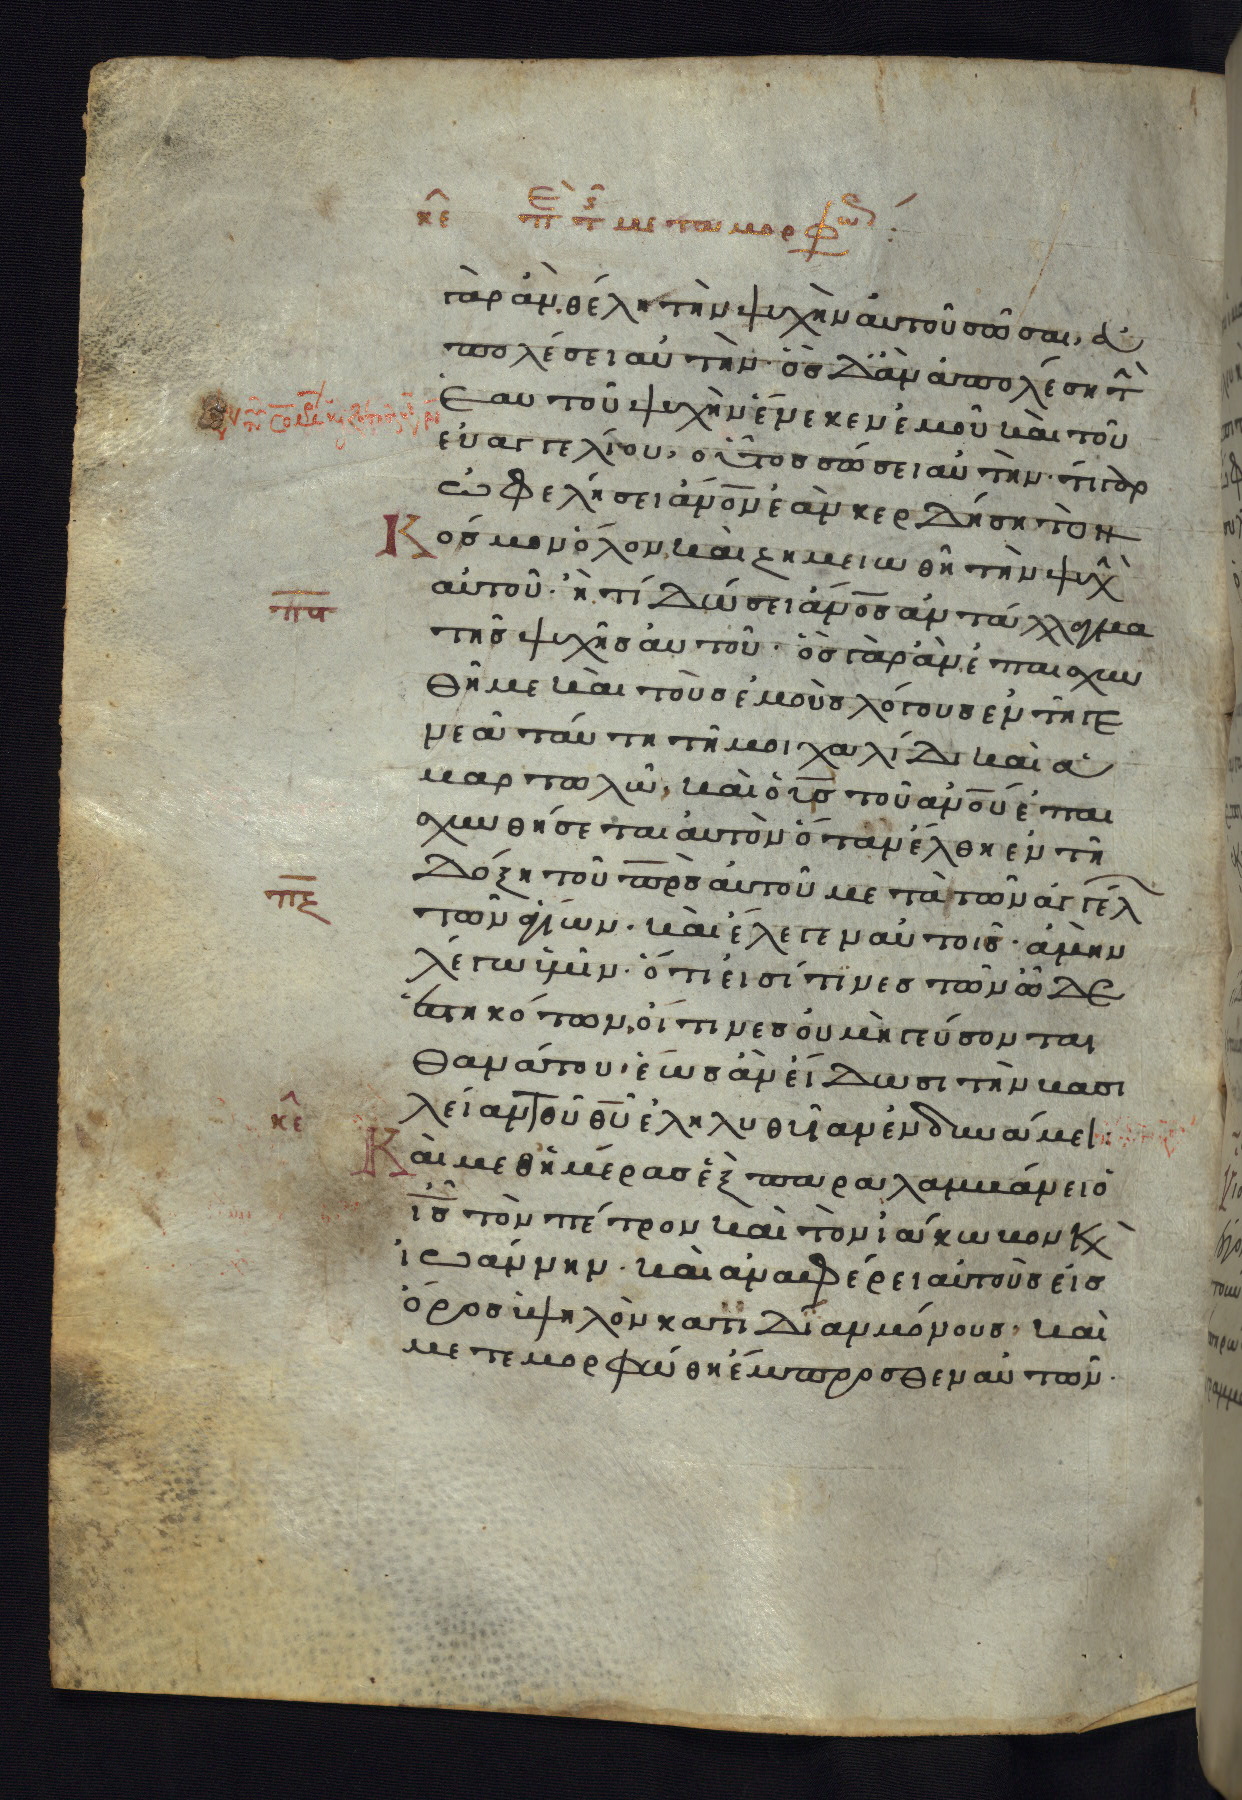 κε περὶ τ(ῆς) μεταμορφώ(σεως):
γὰρ ἂν θέλη τὴν ψυχὴν αὐτοῦ σῶσαι, ἀ
πολέσει αὐτὴν· ὃς δ' ἂν ἀπολέση τ(ὴν)
ἑαυτοῦ ψυχὴν ἕνεκεν ἐμοῦ καὶ τοῦ
εὐαγγελίου, οὗτος σώσει αὐτὴν· τί γὰρ
ὠφελήσει ἄνον ἐὰν κερδήση τὸν
Κόσμον ὅλον, καὶ ζημειωθῆ τὴν ψυχὴ(ν)
αὐτοῦ· ἢ τί δώσει ἄνος ἀντάλλαγμα
πα
τῆς ψυχῆς αὐτοῦ· ὃς γὰρ ἂν ἐπαισχυν
θῆ με καὶ τοὺς ἐμοὺς λόγους ἐν τῆ γε
νεᾶ ταύτη τῆ μοιχαλίδι καὶ ἁ
μαρτωλῶ, καὶ ὁ υς τοῦ ανου ἐπαι
σχυνθήσεται αὐτὸν ὅταν ἔλθη ἐν τῆ
δόξη τοῦ πρς αὐτοῦ μετὰ τῶν ἀγγέλ
πζ
τῶν ἁγίων· καὶ ἔλεγεν αὐτοῖς· ἀμὴν
λέγω ὑμῖν· ὅτι εἰσί τινες τῶν ὧδε
ἑστηκότων, οἵτινες οὐ μὴ γεύσονται
θανάτου, ἕως ἂν εἴδωσι τὴν βασι
λείαν τοῦ θυ ἐληλυθυῖαν ἐν δυνάμει:
κε
Καὶ μεθ' ἡμέρας ἓξ παραλαμβάνει ὁ
ις τὸν πέτρον καὶ τὸν ἰάκωβον κ(αὶ)
ἰωάννην· καὶ ἀναφέρει αὐτοὺς εἰς
ὄρος ὑψηλὸν κατιδίαν μόνους· καὶ
μετεμορφώθη ἔμπροσθεν αὐτῶν·